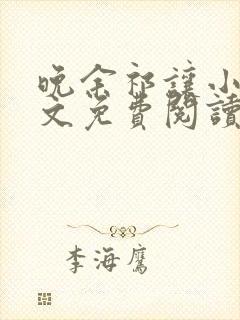 晚余祁讓小
文免費閱讀
李海鷹